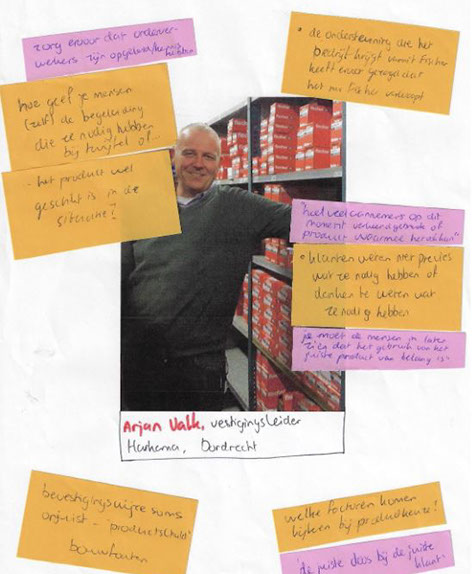 zorg ervoor dat orderver-
werkers zijn opgeleid/kennis
hebben
hoe geef je mensen
(zelf) de begeleiding
die ze nodig hebben
bij twijfel of...
- het product wel
geschikt is in de
situatie?
• de ondersteuning die het
bedrijf krijgt vanuit Fischer
heeft ervoor gezorgd dat
het nu Fischer verkoopt
"heel veel aannemers op dit
moment
product waarmee ze werken"
• klanten weten niet precies
wat ze nodig hebben of
denken te weten wat
ze nodig hebben
je moet de mensen in laten
zien dat het gebruik van het
juiste product van belang is
Arjan Valk, vestigingsleider
Dordrecht
bevestigingswijze soms
onjuist - 'productschuld'
bouwfouten
welke factoren komen
kijken bij productkeuze?
'de juiste doos bij de juiste
klant'